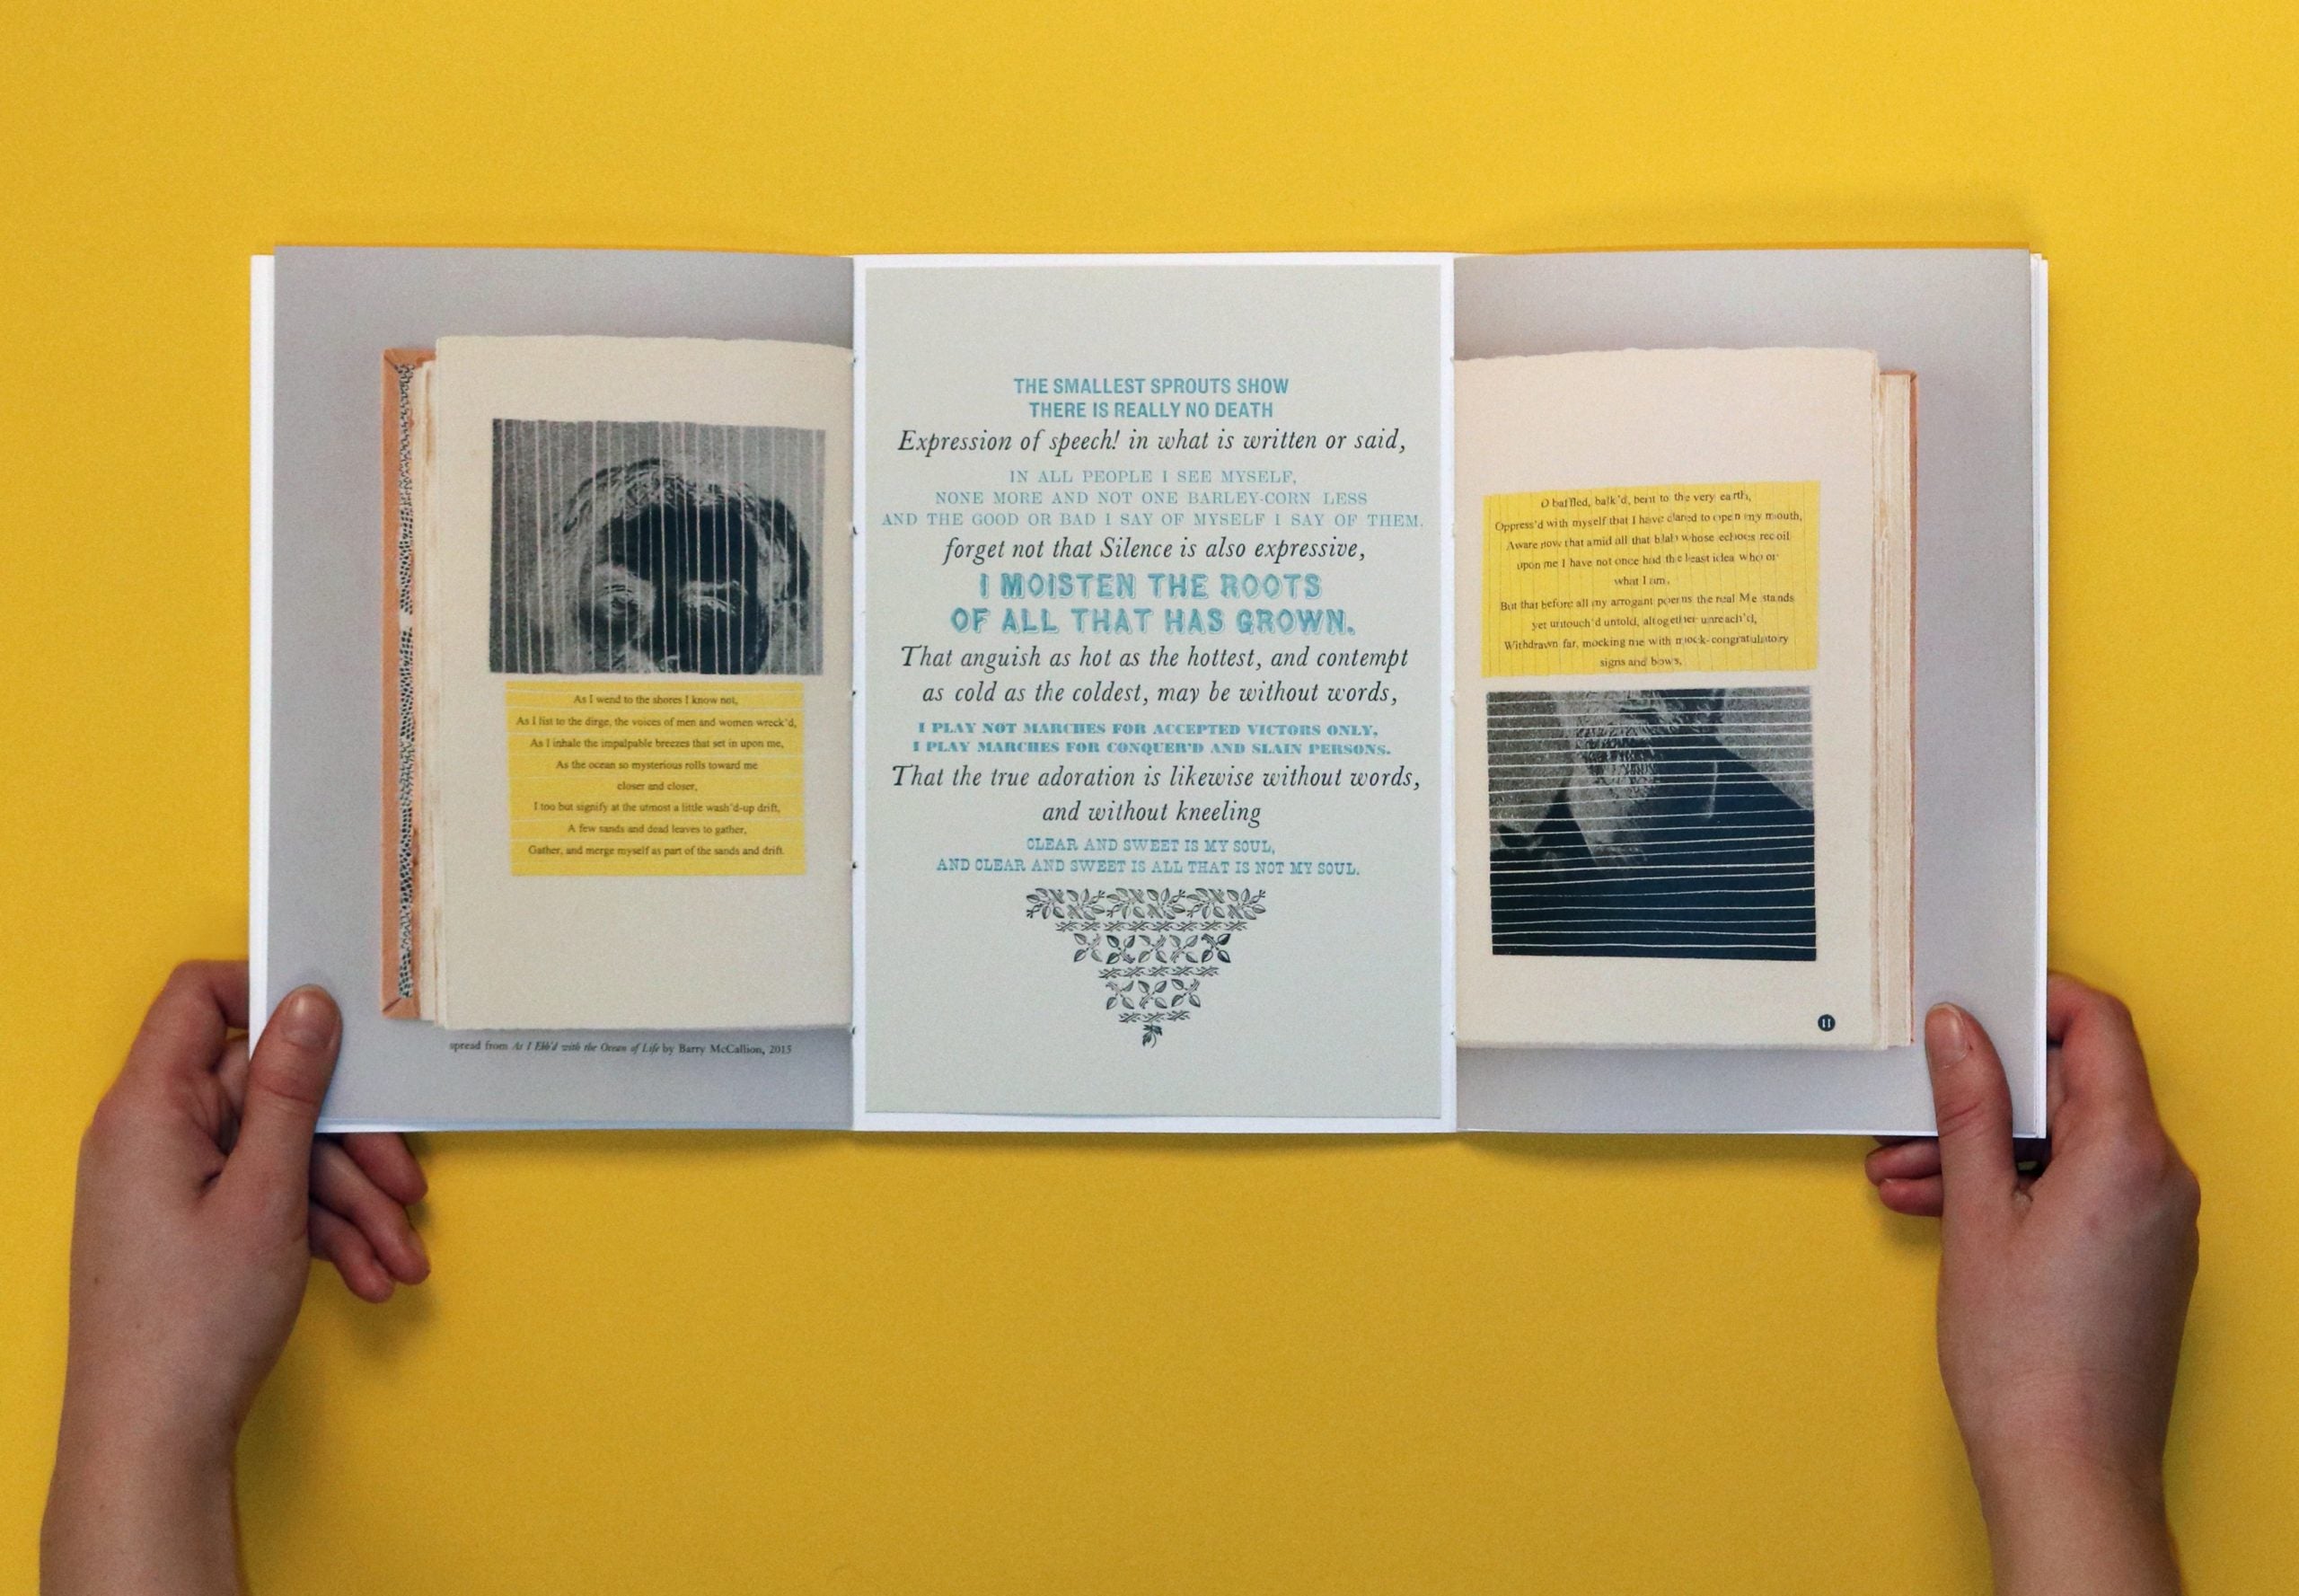 As I wend to the shores I know not,
As I list to the dirge, the voices of men and women wreck'd,
As I inhale the impalpable breezes that set in upon me,
As the ocean so mysterious rolls toward me
closer and closer,
I too but signify at the utmost a little wash'd-up drift,
A few sands and dead leaves to gather,
Gather, and merge myself as part of the sands and drift.
spread from As I Ebb'd with the Ocean of Life by Barry McCallion, 2015
THE SMALLEST SPROUTS SHOW
THERE IS REALLY NO DEATH
Expression of speech! in what is written or said,
IN ALL PEOPLE I SEE MYSELF,
NONE MORE AND NOT ONE BARLEY-CORN LESS
AND THE GOOD OR BAD I SAY OF MYSELF I SAY OF THEM.
forget not that Silence is also expressive,
I MOISTEN THE ROOTS
OF ALL THAT HAS GROWN.
That anguish as hot as the hottest, and contempt
as cold as the coldest, may be without words,
I PLAY NOT MARCHES FOR ACCEPTED VICTORS ONLY,
I PLAY MARCHES FOR CONQUER'D AND SLAIN PERSONS.
That the true adoration is likewise without words,
and without kneeling
CLEAR AND SWEET IS MY SOUL,
AND CLEAR AND SWEET IS ALL THAT IS NOT MY SOUL.
O baffled, balk'd, bent to the very earth,
Oppress'd with myself that I have dared to open my mouth,
Aware now that amid all that blab whose echoes recoil
upon me I have not once had the least idea who or
what I am,
But that before all my arrogant poems the real Me stands
yet untouch'd untold, altogether unreach'd,
Withdrawn far, mocking me with mock-congratulatory
signs and bows,
11